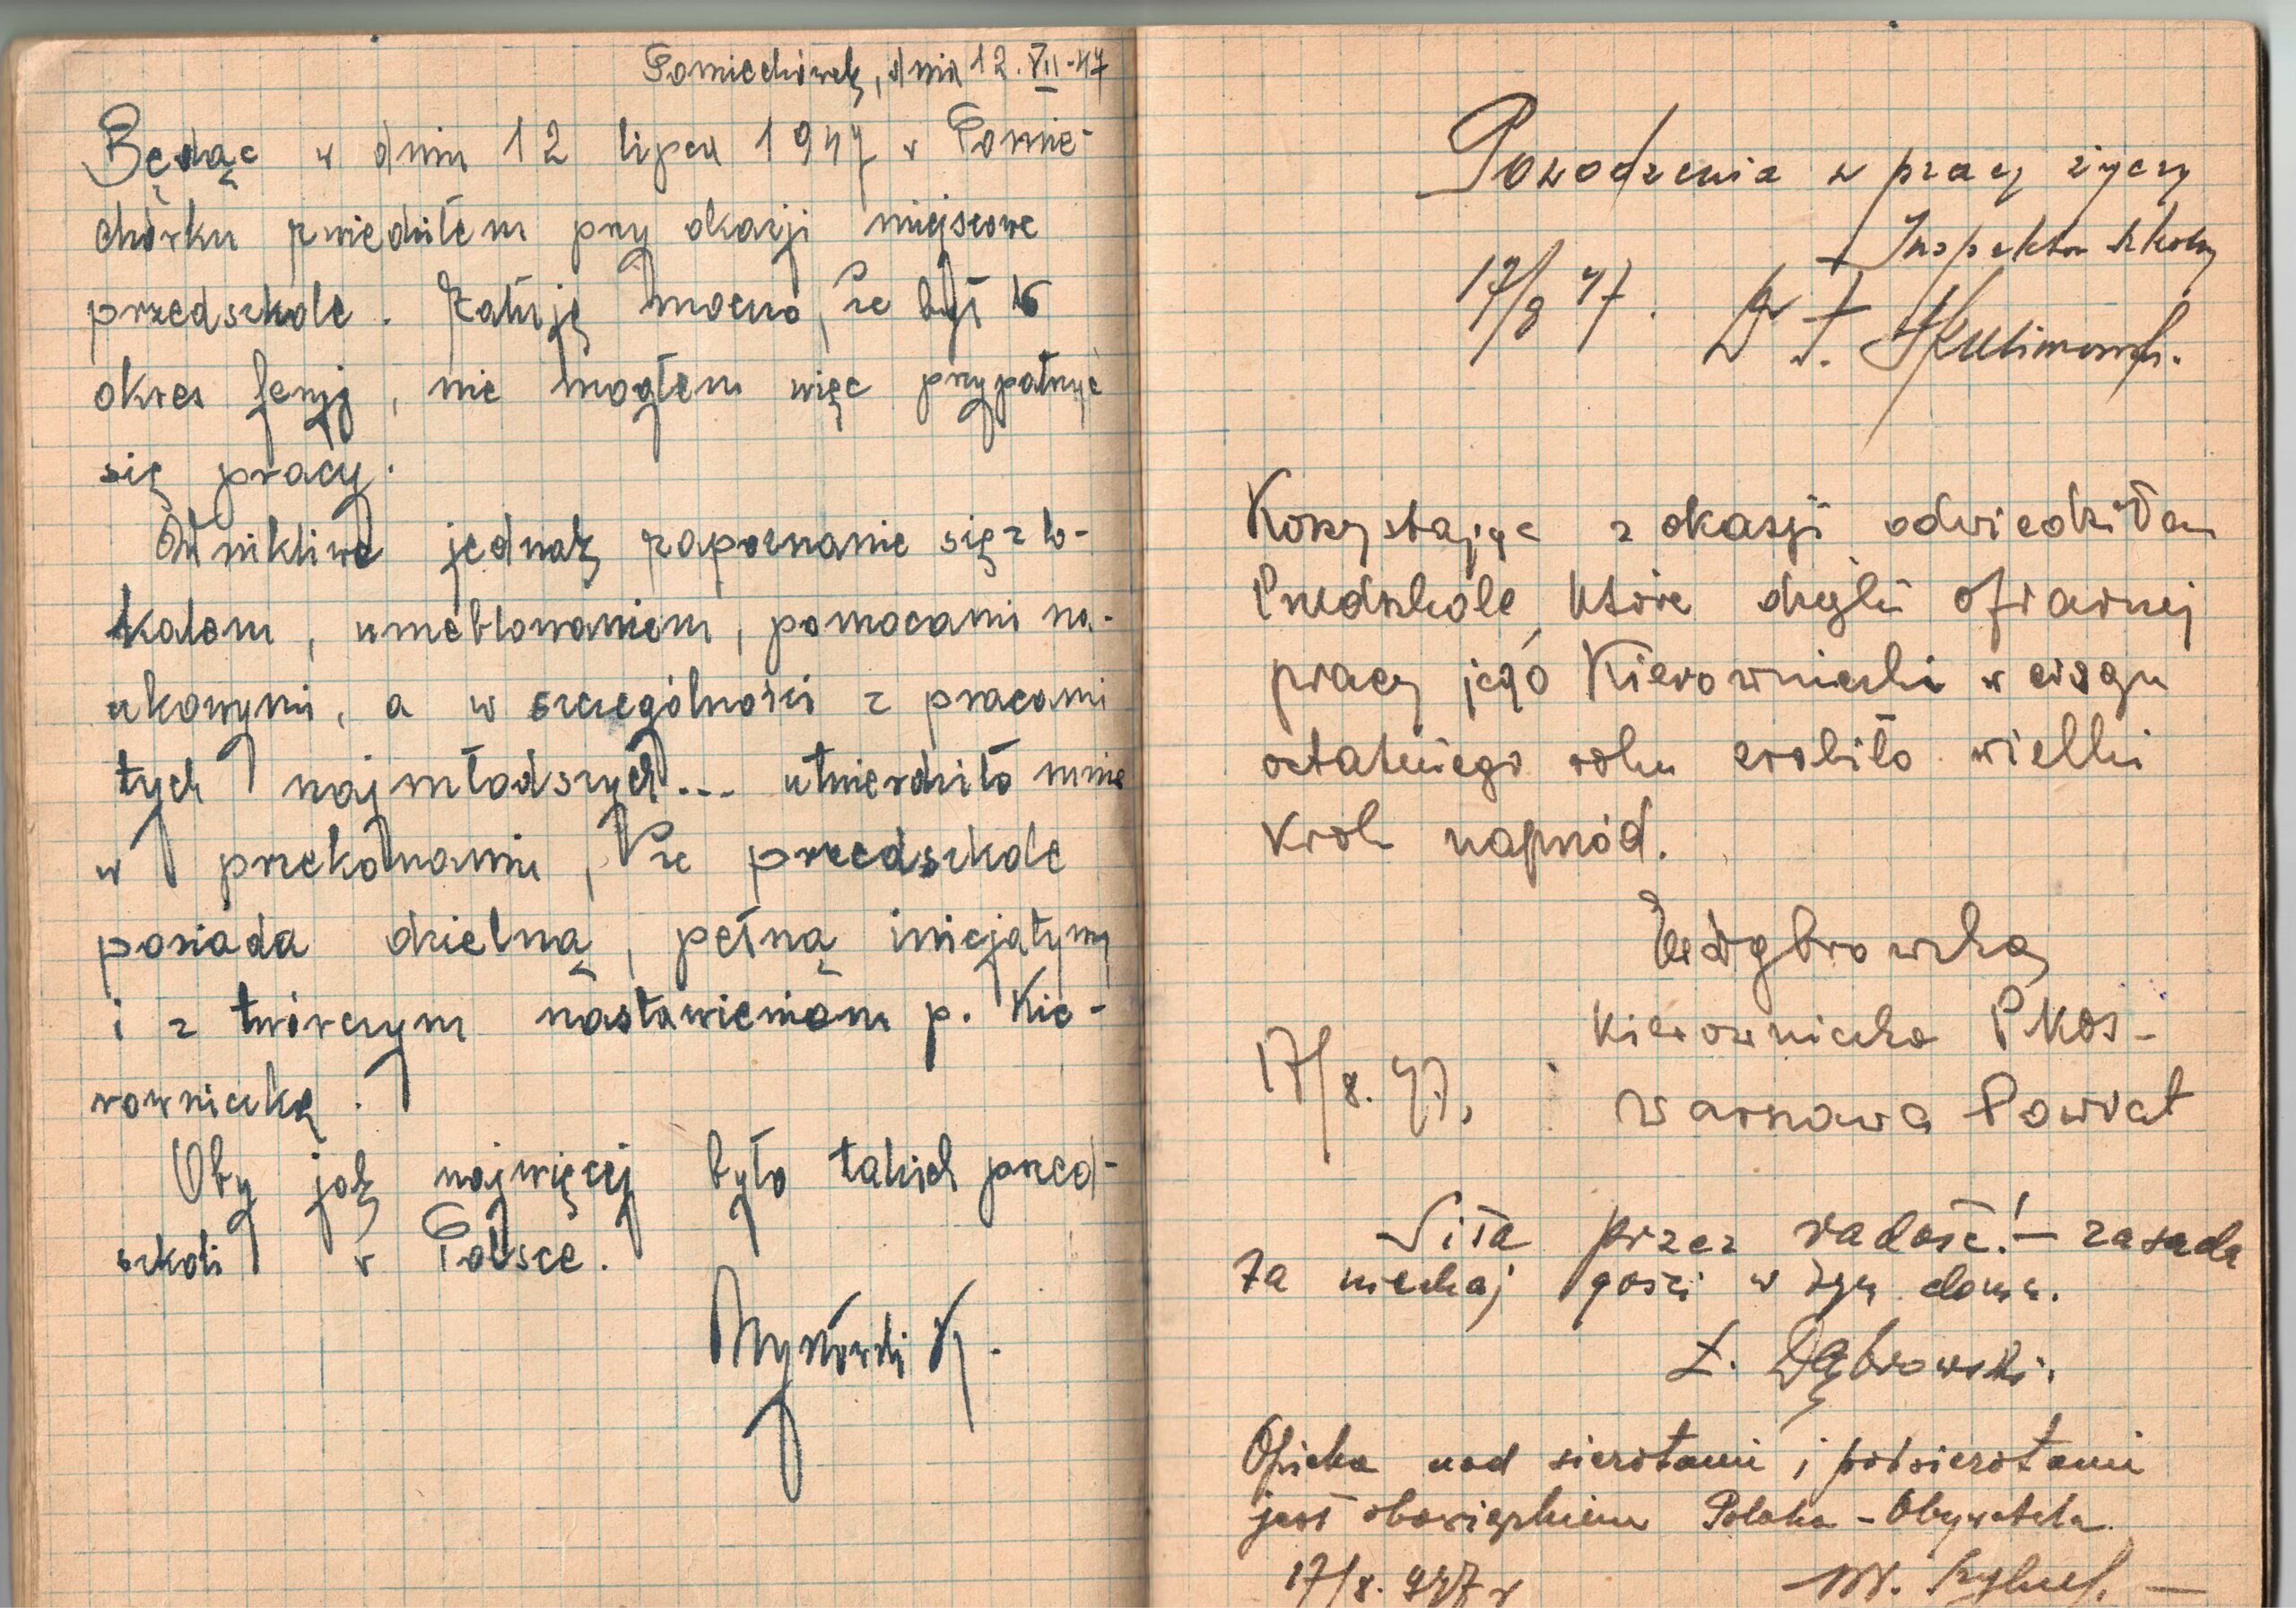 Pomiechówek, dnia 12.VII.47
Będąc w dniu 12 lipca 1947 w Pomie-
chówku zwiedziłem przy okazji miejscowe
przedszkole. Żałuję mocno, że był to
okres feryj, nie mogłem więc przypatrzyć
się pracy.
Wnikliwe jednak zapoznanie się z lo-
kalem, umeblowaniem, pomocami na-
ukowymi, a w szczególności z pracami
tych najmłodszych... utwierdziło mnie
w przekonaniu, że przedszkole
posiada dzielną, pełną inicjatywy
i z twórczym nastawieniem p. Kie-
rowniczkę.
Oby jak najwięcej było takich przed-
szkoli w Polsce.
Powodzenia w pracy życzy
Inspektor szkolny
17/8 47.
Korzystając z okazji odwiedziłam
Przedszkole, które dzięki ofiarnej
pracy jego Kierowniczki w ciągu
ostatniego roku zrobiło wielki
krok naprzód.
Dąbrowska
Kierowniczka PKOS-
17/8.47. Warszawa Powiat
Siła przez radość! — zasada
ta niechaj gości w tym domu.
Z. Dąbrowski.
Opieka nad sierotami i półsierotami
jest obowiązkiem Polaka - Obywatela.
17/8. 947 r